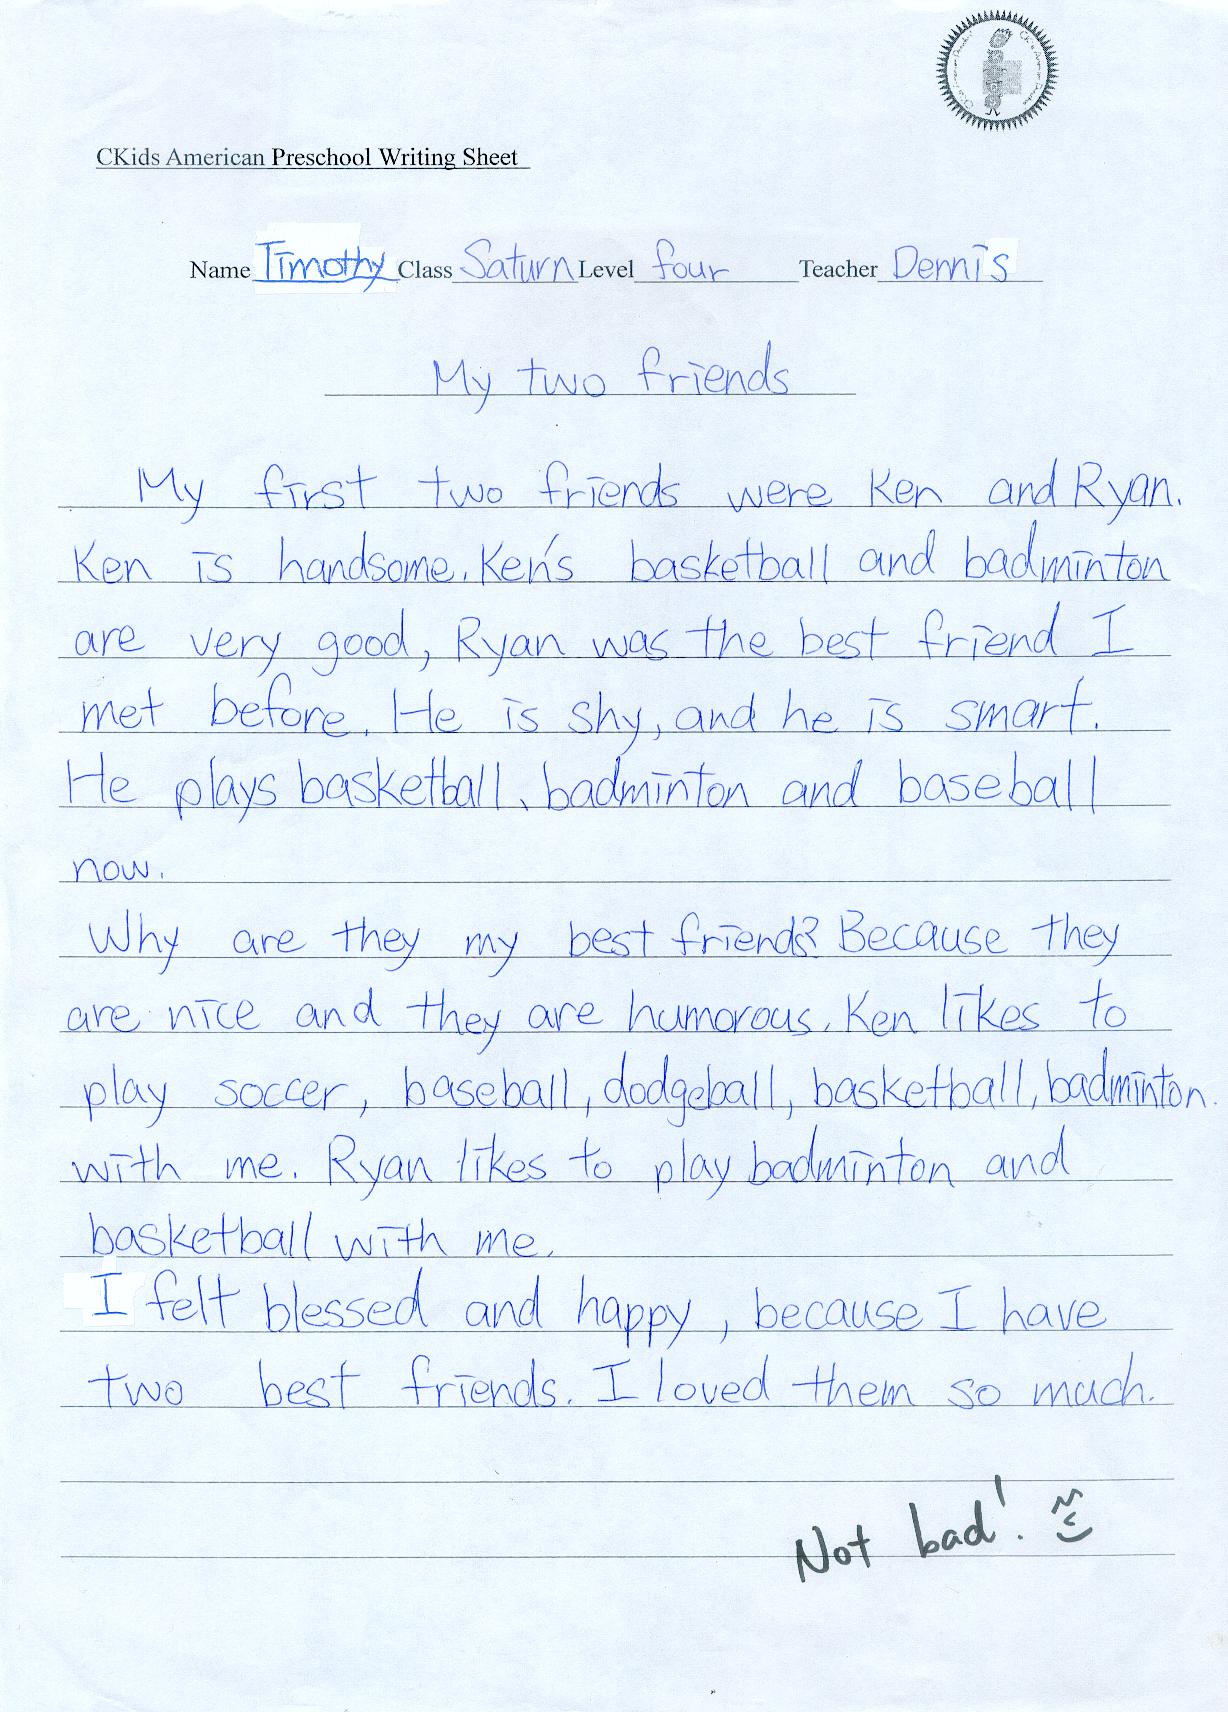 CKids American Preschool Writing Sheet
Name Timothy Class Saturn Level four Teacher Dennis
My two friends
My first two friends were Ken and Ryan.
Ken is handsome. Ken's basketball and badminton
are very good, Ryan was the best friend I
met before. He is shy, and he is smart.
He plays basketball, badminton and baseball
now.
Why are they my best friends? Because they
are nice and they are humorous. Ken likes to
play soccer, baseball, dodgeball, basketball, badminton.
with me. Ryan likes to play badminton and
basketball with me.
I felt blessed and happy, because I have
two best friends. I loved them so much.
Not bad!